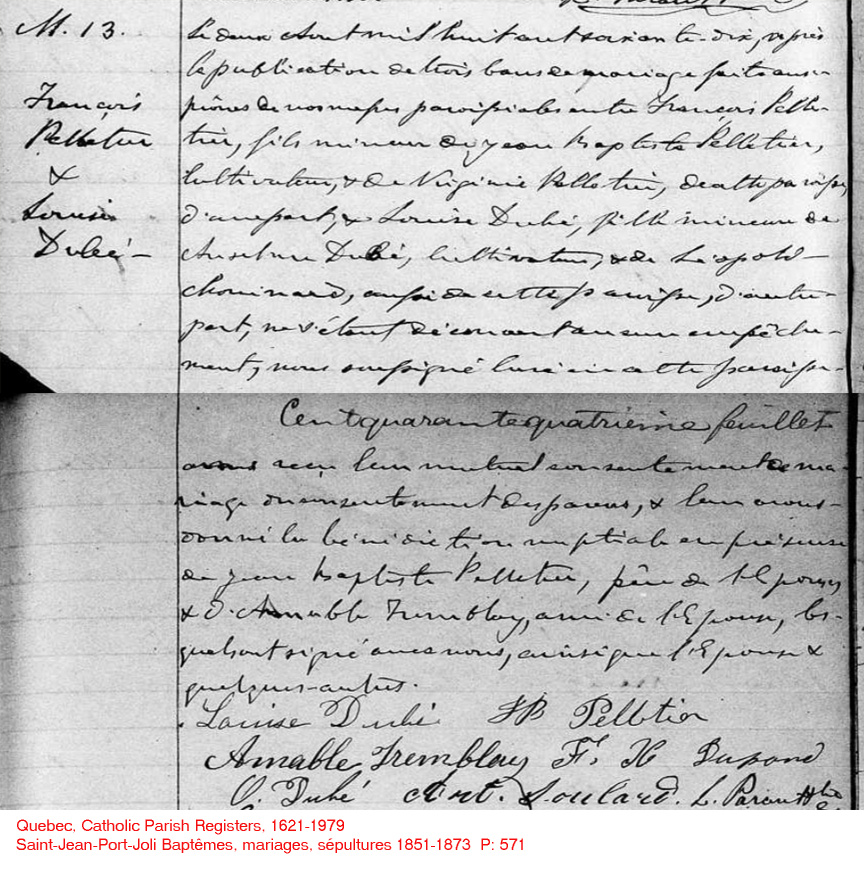 M. 13.
François
Pelletier
&
Louise
Dubé –
Le deux Aout mil huit cent soixante-dix, après
la publication de trois bans de mariage faite aux
prônes de nos messes paroissiales entre François Pelle-
tier, fils mineur de Jean Baptiste Pelletier,
Cultivateur, & de Virginie Pelletier, de cette paroisse,
d'une part, & Louise Dubé, fille mineure de
Anselme Dubé, Cultivateur, & de Léopold-
Chouinard, aussi de cette paroisse, d'autre-
part, ne s'étant découvert aucun empêche-
ment, nous soussigné Curé de cette paroisse
Cent quarante quatrième feuillet
avons reçu leur mutuel consentement de ma-
riage du consentement des parens, & leur avons
donné la bénédiction nuptiale en présence
de Jean Baptiste Pelletier, père de l'Epoux,
& d'Amable Tremblay, ami de l'Epoux, les-
quels ont signé avec nous, ainsi que l'Epouse &
quelques-autres.
Louise Dubé JB Pelletier
Amable Tremblay F. X Dupond
O. Dubé Art. Soulard. L. Parant Ptre
Quebec, Catholic Parish Registers, 1621-1979
Saint-Jean-Port-Joli Baptêmes, mariages, sépultures 1851-1873 P: 571